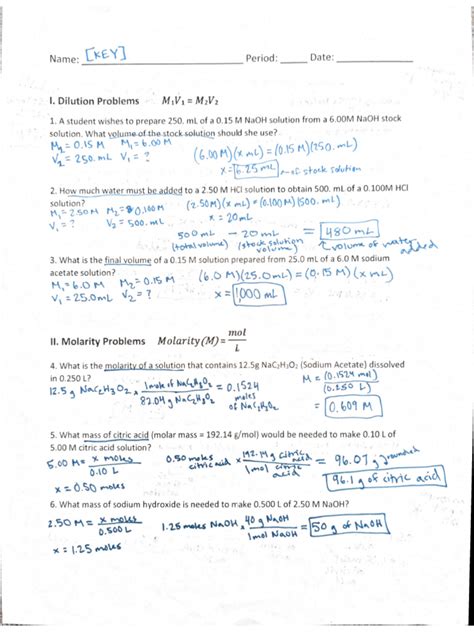 Name: [KEY] Period: Date:
I. Dilution Problems M₁V₁ = M₂V₂
1. A student wishes to prepare 250. mL of a 0.15 M NaOH solution from a 6.00M NaOH stock
solution. What volume of the stock solution should she use?
M₂ = 0.15 M M₁ = 6.00 M
V₂ = 250. mL V₁ = ?
(6.00 M)(x mL) = (0.15 M)(250. mL)
x = 6.25 mL of stock solution
2. How much water must be added to a 2.50 M HCl solution to obtain 500. mL of a 0.100M HCl
solution?
M₁ = 2.50M M₂ = 0.100M (2.50M)(x mL) = (0.100 M)(500. mL)
V₁ = ? V₂ = 500. mL x = 20mL
500 mL – 20 mL = 480 mL
(total volume) (stock solution volume) volume of water added
3. What is the final volume of a 0.15 M solution prepared from 25.0 mL of a 6.0 M sodium
acetate solution?
M₁ = 6.0 M M₂ = 0.15 M (6.0 M)(25.0mL) = (0.15 M)(x mL)
V₁ = 25.0mL V₂ = ? x = 1,000 mL
II. Molarity Problems Molarity (M) = mol/L
4. What is the molarity of a solution that contains 12.5g NaC₂H₃O₂ (Sodium Acetate) dissolved
in 0.250 L?
12.5 g NaC₂H₃O₂ · 1 mole of NaC₂H₃O₂ / 82.04 g NaC₂H₃O₂ = 0.1524 moles of NaC₂H₃O₂
M = (0.1524 mol) / (0.250 L)
= 0.609 M
5. What mass of citric acid (molar mass = 192.14 g/mol) would be needed to make 0.10 L of
5.00 M citric acid solution?
5.00 M = x moles / 0.10 L
0.50 moles citric acid · 192.14 g citric acid / 1 mol citric acid = 96.07 g rounded
96.1 g of citric acid
x = 0.50 moles
6. What mass of sodium hydroxide is needed to make 0.500 L of 2.50 M NaOH?
2.50 M = x moles / 0.500 L
1.25 moles NaOH · 40 g NaOH / 1 mol NaOH = 50 g of NaOH
x = 1.25 moles